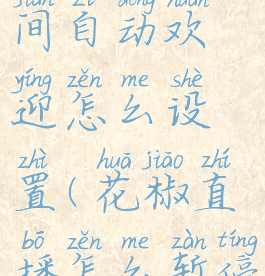 jiān zì dòng huān
间自动欢
yíng zěn me shè
迎怎么设
zhì huā jiāo zhí
置(花椒直
bō zěn me zàn tíng
播怎么暂停